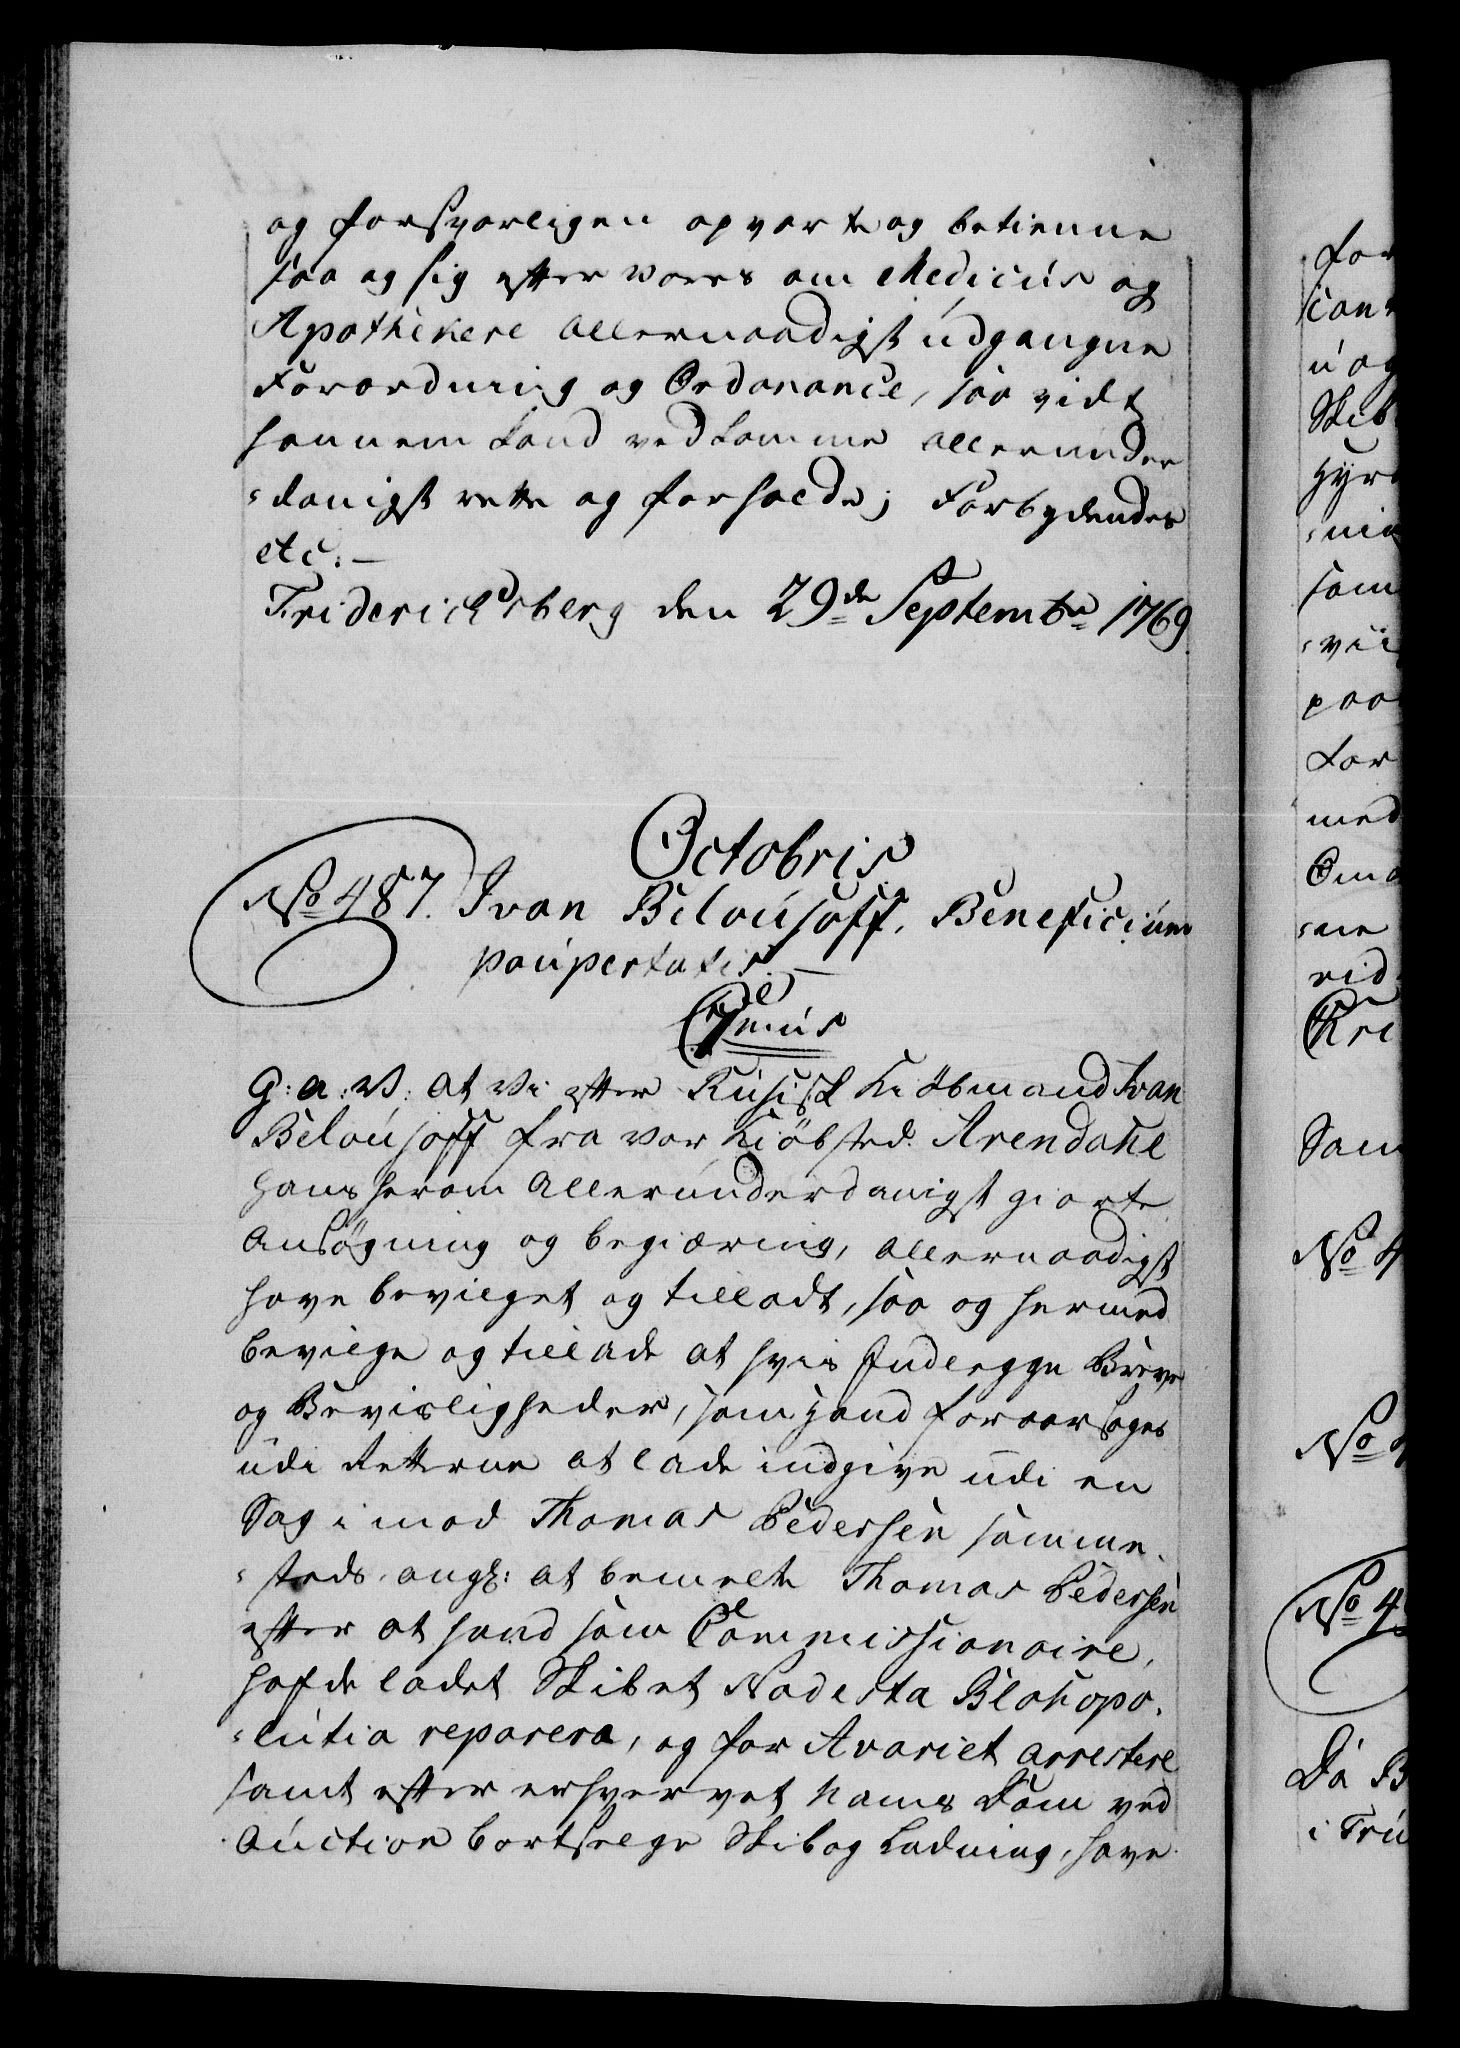 og forsvarligen opvarte og betienne
saa og sig efter vores om Medicis og
Apothekere allernaadigst udgangne
Forordning og Ordonance, saa vidt
hannem kand vedkomme allerunder
-danigst rette og forholde; Forbydendes
etc:—
Friderichsberg den 29de Septembr 1769
Octobris
No 487. Ivan Bilousoff, Beneficium
paupertatis.—
C 7mus
G: a: V: at Vi efter Rusisk Kiöbmand Ivan
Bilousoff fra vor Kiöbsted Arendahl
hans herom allerunderdanigst giorte
Ansögning og begiæring, allernaadigst
have bevilget og tilladt, saa og hermed
bevilge og tillade at hvis Indlegge Breve
og Bevisligheder, som hand foraarsages
udi Retterne at lade indgive udi en
Sag imod Thomas Pedersen samme-
-steds, angl: at bemelte Thomas Pedersen
efter at hand som Commissionaire,
hafde ladet Skibet Nadesta Blahopo-
-lutia reparera, og for Avariet arrestere
samt efter erhvervet Nams Dom ved
Auction bortselge Skib og Ladning, have
for
u og
Skib
Hyr
som
paa
med
-ne
Kri
Sam
No 4
No 4
No 4
Da B
i Tru